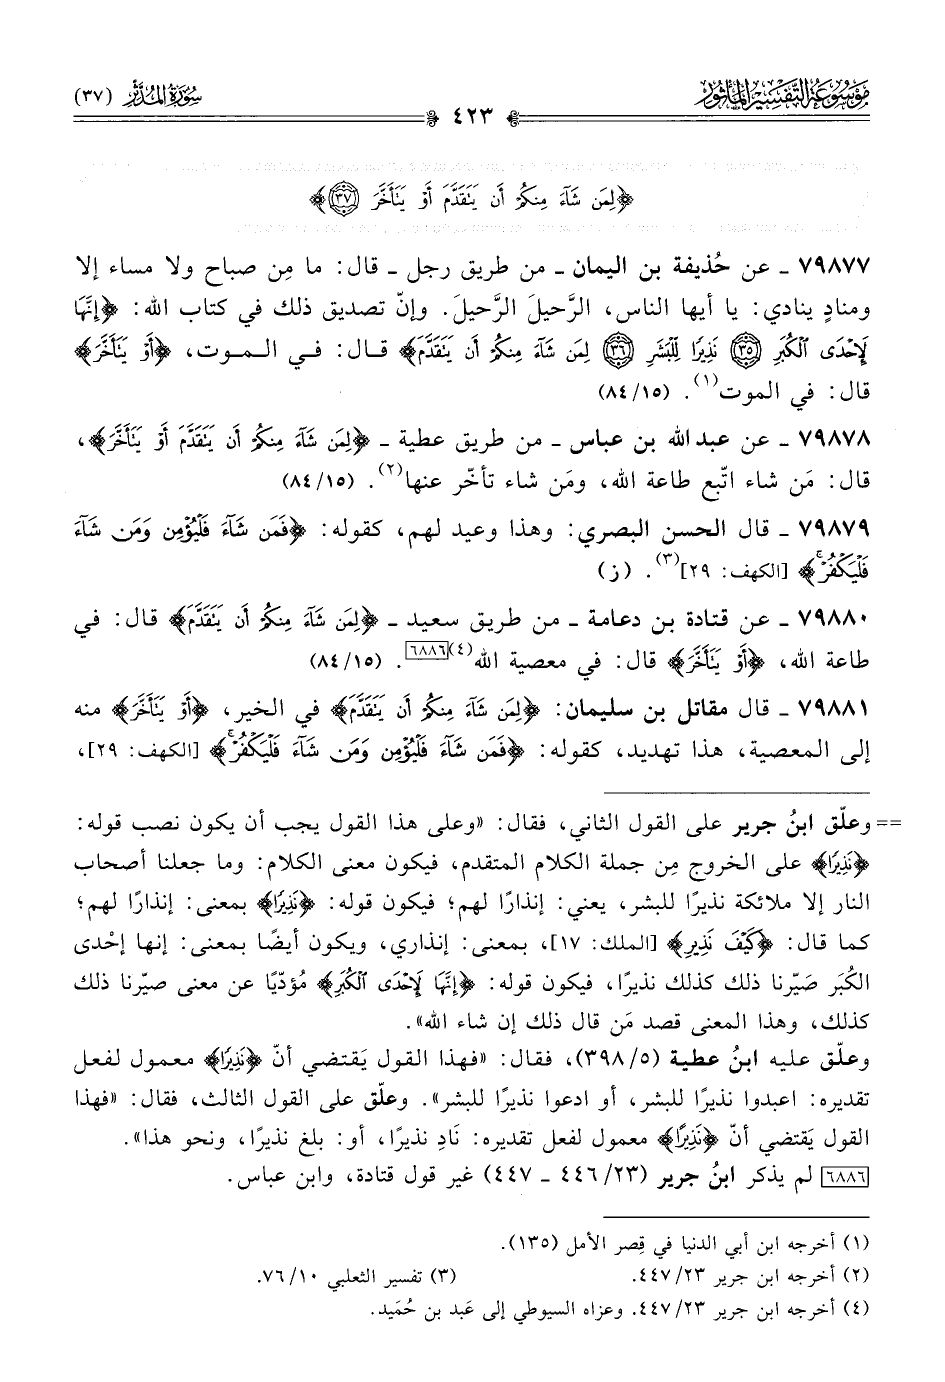 مَوْسُوعَة التَّفْسِير المَأْثُور
سُورَةُ المُدَّثِّر (٣٧)
٤٢٣
﴿لِمَن شَآءَ مِنكُمْ أَن يَتَقَدَّمَ أَوْ يَتَأَخَّرَ ٣٧﴾
٧٩٨٧٧ ـ عن حُذيفة بن اليمان ـ من طريق رجل ـ قال: ما مِن صباح ولا مساء إلا
ومنادٍ ينادي: يا أيها الناس، الرَّحيلَ الرَّحيلَ. وإنّ تصديق ذلك في كتاب الله: ﴿إِنَّهَا
لَإِحْدَى ٱلْكُبَرِ ٣٥ نَذِيرًا لِّلْبَشَرِ ٣٦ لِمَن شَآءَ مِنكُمْ أَن يَتَقَدَّمَ﴾ قال: في الموت، ﴿أَوْ يَتَأَخَّرَ﴾
قال: في الموت(١). (٨٤/١٥)
٧٩٨٧٨ ـ عن عبد الله بن عباس ـ من طريق عطية ـ ﴿لِمَن شَآءَ مِنكُمْ أَن يَتَقَدَّمَ أَوْ يَتَأَخَّرَ﴾،
قال: مَن شاء اتّبع طاعة الله، ومَن شاء تأخّر عنها(٢). (٨٤/١٥)
٧٩٨٧٩ ـ قال الحسن البصري: وهذا وعيد لهم، كقوله: ﴿فَمَن شَآءَ فَلْيُؤْمِن وَمَن شَآءَ
فَلْيَكْفُرْۚ﴾ [الكهف: ٢٩](٣). (ز)
٧٩٨٨٠ ـ عن قتادة بن دعامة ـ من طريق سعيد ـ ﴿لِمَن شَآءَ مِنكُمْ أَن يَتَقَدَّمَ﴾ قال: في
طاعة الله، ﴿أَوْ يَتَأَخَّرَ﴾ قال: في معصية الله(٤)[٦٨٨٦]. (٨٤/١٥)
٧٩٨٨١ ـ قال مقاتل بن سليمان: ﴿لِمَن شَآءَ مِنكُمْ أَن يَتَقَدَّمَ﴾ في الخير، ﴿أَوْ يَتَأَخَّرَ﴾ منه
إلى المعصية، هذا تهديد، كقوله: ﴿فَمَن شَآءَ فَلْيُؤْمِن وَمَن شَآءَ فَلْيَكْفُرْۚ﴾ [الكهف: ٢٩]،
== وعلّق ابنُ جرير على القول الثاني، فقال: «وعلى هذا القول يجب أن يكون نصب قوله:
﴿نَذِيرًا﴾ على الخروج مِن جملة الكلام المتقدم، فيكون معنى الكلام: وما جعلنا أصحاب
النار إلا ملائكة نذيرًا للبشر، يعني: إنذارًا لهم؛ فيكون قوله: ﴿نَذِيرًا﴾ بمعنى: إنذارًا لهم؛
كما قال: ﴿كَيْفَ نَذِيرِ﴾ [الملك: ١٧]، بمعنى: إنذاري، ويكون أيضًا بمعنى: إنها إحْدى
الكُبَر صَيّرنا ذلك كذلك نذيرًا، فيكون قوله: ﴿إِنَّهَا لَإِحْدَى ٱلْكُبَرِ﴾ مُؤدّيًا عن معنى صيّرنا ذلك
كذلك، وهذا المعنى قصد مَن قال ذلك إن شاء الله».
وعلّق عليه ابنُ عطية (٣٩٨/٥)، فقال: «فهذا القول يَقتضي أنّ ﴿نَذِيرًا﴾ معمول لفعل
تقديره: اعبدوا نذيرًا للبشر، أو ادعوا نذيرًا للبشر». وعلّق على القول الثالث، فقال: «فهذا
القول يَقتضي أنّ ﴿نَذِيرًا﴾ معمول لفعل تقديره: نَادِ نذيرًا، أو: بلغ نذيرًا، ونحو هذا».
[٦٨٨٦] لم يذكر ابنُ جرير (٤٤٦/٢٣ ـ ٤٤٧) غير قول قتادة، وابن عباس.
(١) أخرجه ابن أبي الدنيا في قِصر الأمل (١٣٥).
(٢) أخرجه ابن جرير ٤٤٧/٢٣. (٣) تفسير الثعلبي ٧٦/١٠.
(٤) أخرجه ابن جرير ٤٤٧/٢٣. وعزاه السيوطي إلى عَبد بن حُمَيد.